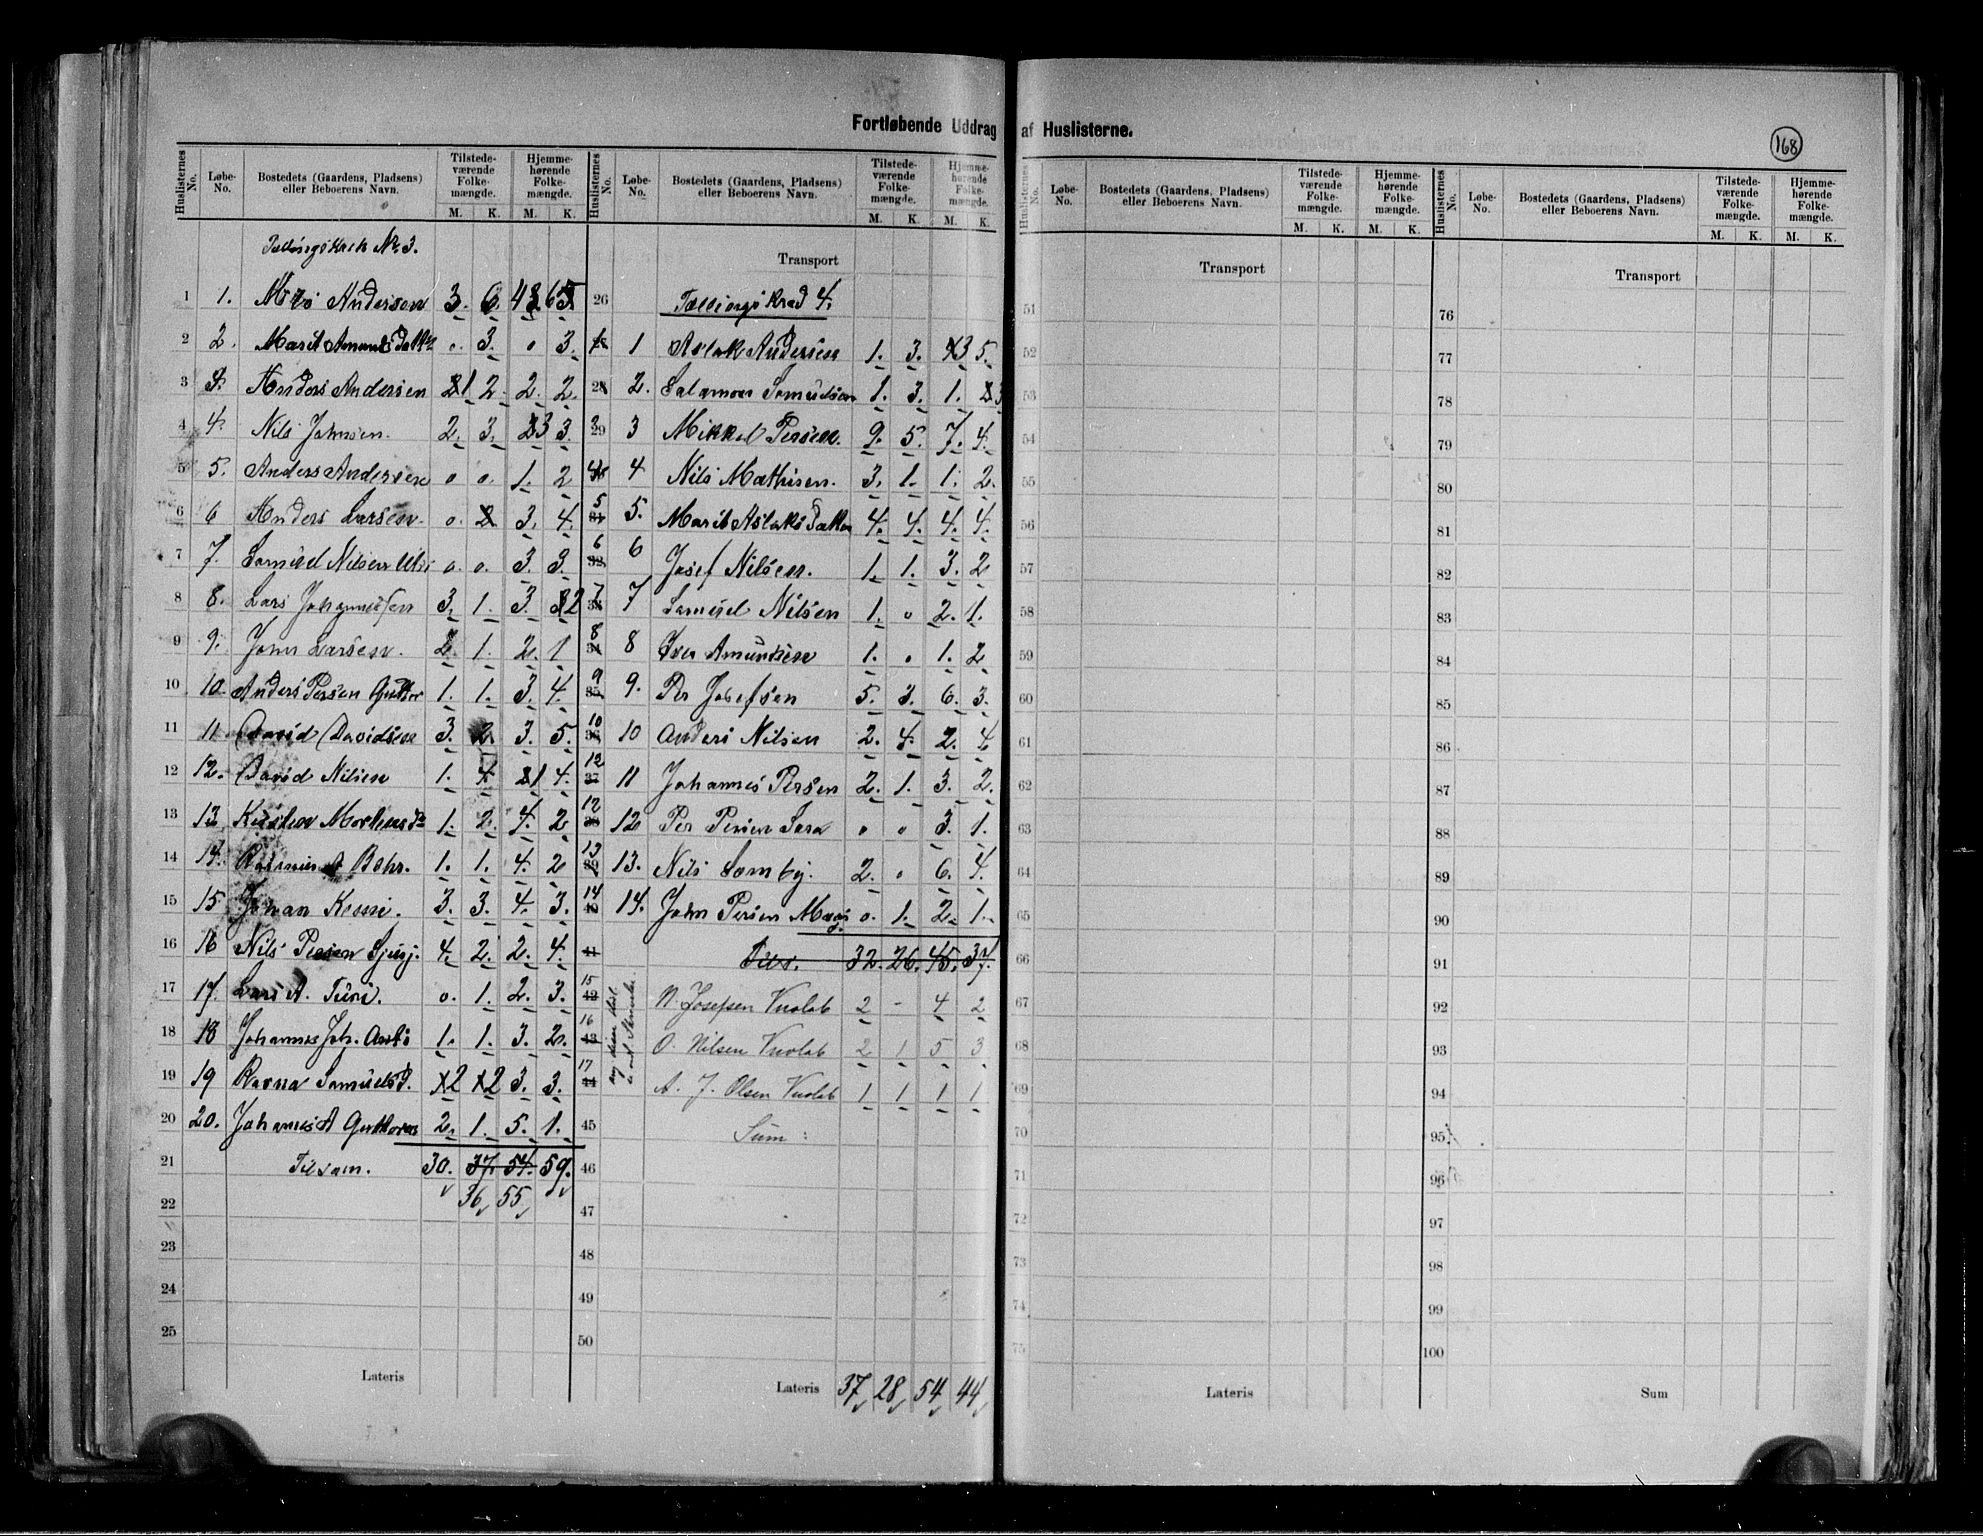 Fortløbende Uddrag af Huslisterne.
168
Huslisternes No. Løbe-No. Bostedets (Gaardens, Pladsens) eller Beboerens Navn. Tilstedeværende Folkemængde. M. K. Hjemmehørende Folkemængde. M. K.
Tællingskreds No. 3.
1 1. Nils Andersen 3. 6.
2 2. Marit Amundsdatter 0. 3. 0 3.
3 3. Anders Andersen 1 2. 2. 2.
4 4. Nils Johnsen. 2. 3. 3 3.
5 5. Anders Andersen 0 0. 1. 2
6 6 Anders Larsen. 0. 2 3. 4.
7 7. Samuel Nilsen Utsi 0. 0. 3. 3.
8 8. Lars Johannessen 3. 1. 3. 2
9 9. John Larsen. 2. 1. 2. 1
10 10. Anders Persen Guttor 1. 1. 3. 4.
11 11. David Davidsen 3. 2. 3. 5.
12 12. David Nilsen 1. 4. 1 4.
13 13 Kirsten Mortensd. 1. 2. 4. 2
14 14. 1. 1. 4. 2
15 15 Johan Kemi. 3. 3. 4. 3.
16 16 Nils Persen 4. 2. 2. 4.
17 17. Lars A. Turi. 0. 1. 2. 3.
18 18 Johannes Joh. 1. 1. 3. 2.
19 19 Ravna Samuelsd. 2 2 3. 3.
20 20. Johannes A Guttorm 2. 1. 5. 1.
21 Tilsam. 30. 37. 54. 59.
22 36 55
23
24
25
Lateris
Huslisternes No. Løbe-No. Bostedets (Gaardens, Pladsens) eller Beboerens Navn. Tilstedeværende Folkemængde. M. K. Hjemmehørende Folkemængde. M. K.
Transport
26 Tællingskreds 4.
1 Aslak Andersen 1. 3. 3 5.
28 2. Salamon Samuelsen 1. 3. 1. 3
29 3 Mikkel Persen. 9. 5. 7. 4.
4 Nils Mathisen. 3. 1. 1. 2.
5 31 5. Marit Aslaksdatter 4. 4. 4. 4.
6 32 6 Josef Nilsen. 1. 1. 3. 2
7 33 7 Samuel Nilsen 1. 0 2. 1.
8 34 8 Iver Amundsen 1. 0 1. 2
9 35 9. Per Josefsen 5. 3. 6. 3.
10 36 10 Anders Nilsen 2. 4. 2. 4
12 37 11 Johannes Persen 2. 1. 3. 2.
12 38 12 Per Persen Sara 0 0 3. 1.
13 39 13. Nils Somby. 2. 0 6. 4.
14 40 14. John Persen 0. 1. 2. 1.
41 Tils. 32. 26. 45. 37.
15 42 N. Josefsen Vuolab 2 - 4 2
16 43 O. Nilsen Vuolab 2 1 5 3
17 44 A. J. Olsen Vuolab 1 1 1 1
45 Sum:
46
47
48
49
50
Lateris 37 28 54 44
Huslisternes No. Løbe-No. Bostedets (Gaardens, Pladsens) eller Beboerens Navn. Tilstedeværende Folkemængde. M. K. Hjemmehørende Folkemængde. M. K.
Transport
51
52
53
54
55
56
57
58
59
60
61
62
63
64
65
66
67
68
69
70
71
72
73
74
75
Lateris
Huslisternes No. Løbe-No. Bostedets (Gaardens, Pladsens) eller Beboerens Navn. Tilstedeværende Folkemængde. M. K. Hjemmehørende Folkemængde. M. K.
Transport
76
77
78
79
80
81
82
83
84
85
86
87
88
89
90
91
92
93
94
95
96
97
98
99
100
Sum